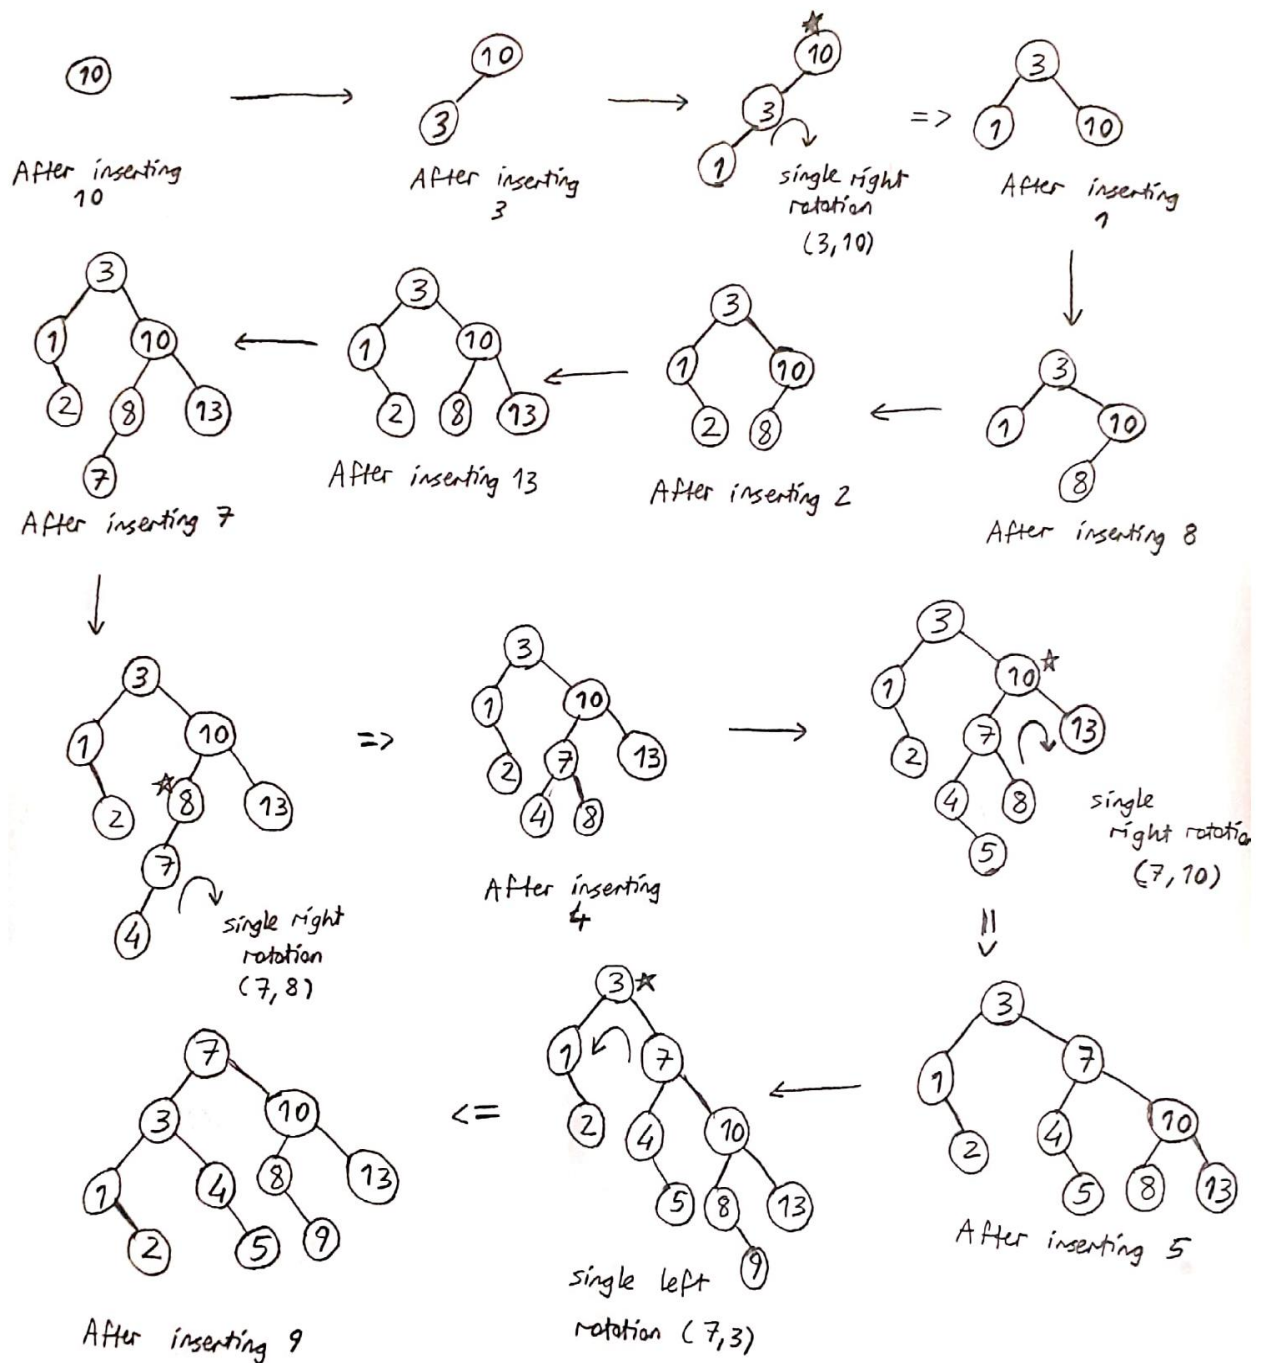 10
After inserting
10
10
3
After inserting
3
10
3
1
single right
rotation
(3,10)
=>
3
1 10
After inserting
1
3
1 10
8
After inserting 8
3
1 10
2 8
After inserting 2
3
1 10
2 8 13
After inserting 13
3
1 10
2 8 13
7
After inserting 7
3
1 10
2 8 13
7
4
single right
rotation
(7,8)
=>
3
1 10
2 7 13
4 8
After inserting
4
3
1 10
2 7 13
4 8
5
single
right rotatio
(7,10)
3
1 7
2 4 10
5 8 13
After inserting 5
3
1 7
2 4 10
5 8 13
9
single left
rotation (7,3)
<=
7
3 10
1 4 8 13
2 5 9
After inserting 9